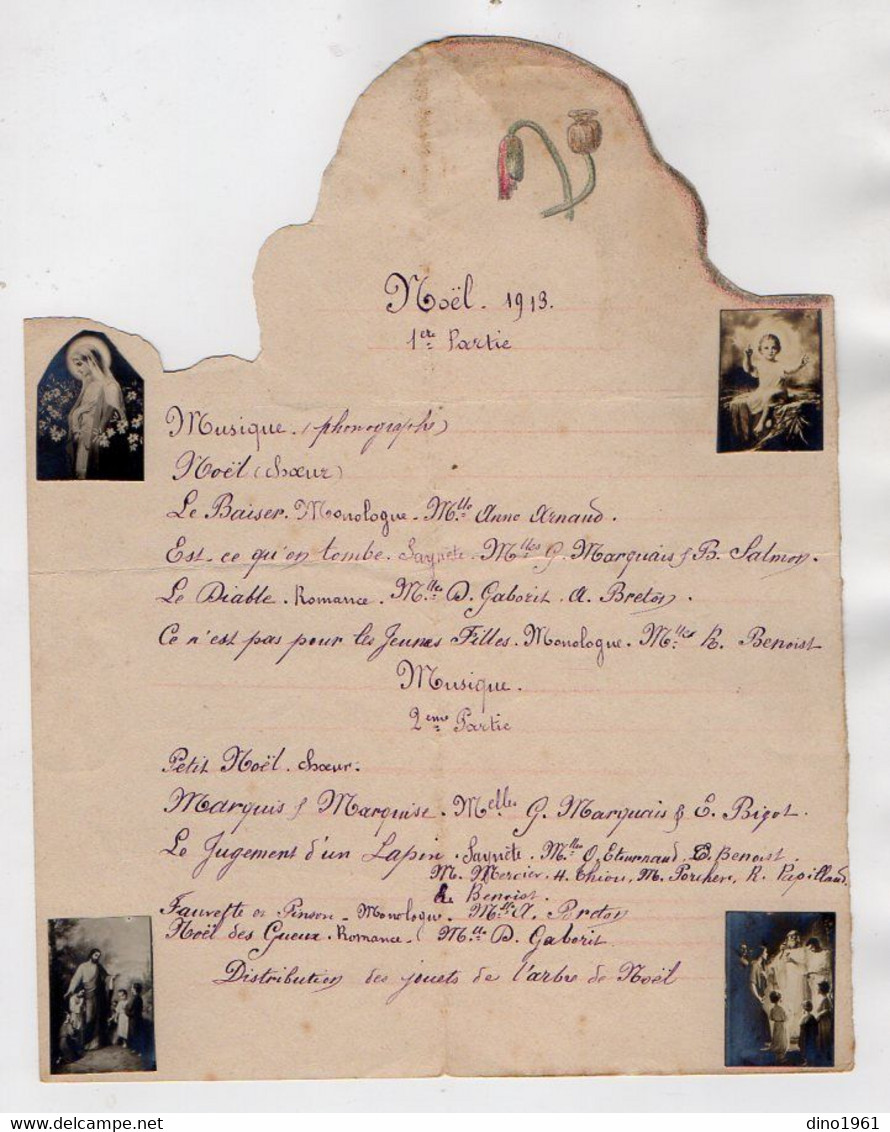 Noël. 1913.
1ère Partie
Musique. (phonographe)
Noël (chœur)
Le Baiser. Monologue. Mlle Anne Arnaud.
Est-ce qu'on tombe. Saynète. Mlles G. Marquais & B. Salmon.
Le Diable. Romance. Mlles D. Gaborit. A. Breton.
Ce n'est pas pour les Jeunes Filles. Monologue. Mlles R. Benoist
Musique.
2ème Partie
Petit Noël. chœur.
Marquis & Marquise. Melles G. Marquais & E. Bigot.
Le Jugement d'un Lapin. Saynète. Mlles O. Etournaud. Benoist.
M. Mercier. H. Thiou, M. Porcher, R. Papillaud.
& Benoist.
Fauvette et Pinson. Monologue. Mlle A. Breton
Noël des Gueux. Romance. (Mlle D. Gaborit.
Distribution des jouets de l'arbre de Noël
delcampe.net
dino1961